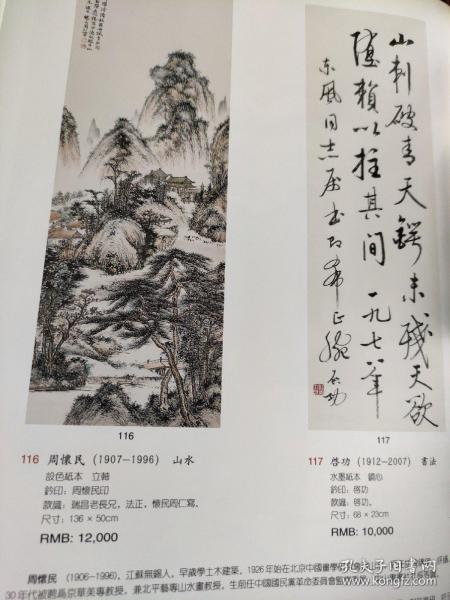 山刺破青天鍔未殘天欲
墮賴以拄其間 一九七八年
东风同志属书即希正腕 启功
116
117
116 周懷民 (1907-1996) 山水
設色紙本 立軸
鈐印：周懷民印
款識：瑞昌老長兄，法正，懷民周仁寫。
尺寸：136 × 50cm
RMB: 12,000
117 啓功 (1912-2007) 書法
水墨紙本 鏡心
鈐印：啓功
款識：啓功。
尺寸：68 × 23cm
RMB: 10,000
周懷民 (1906-1996)，江蘇無錫人。早歲學土木建築。1926年始在北京中國畫學研
30年代被聘爲京華美專教授，兼北平藝專山水畫教授。生前任中國國民黨革命委員會監
孔夫子旧书网